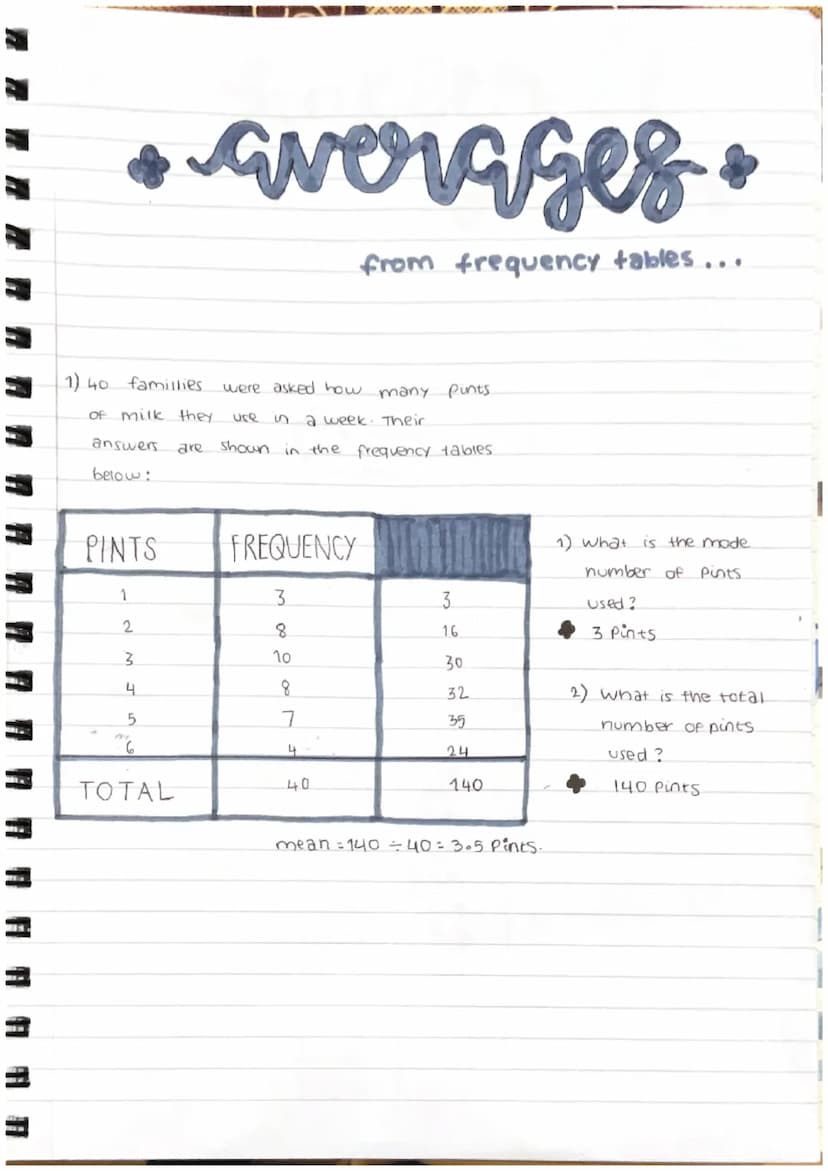 averages
from frequency tables...
1) 40 famillies were asked how many pints
of milk they use in a week. Their
answers are shown in the frequency tables
below:
PINTS FREQUENCY
1 3 3
2 8 16
3 10 30
4 8 32
5 7 35
6 4 24
TOTAL 40 140
mean = 140 ÷ 40 = 3.5 Pints.
1) What is the mode
number of pints
used?
3 Pints
2) What is the total
number of pints
used?
140 Pints